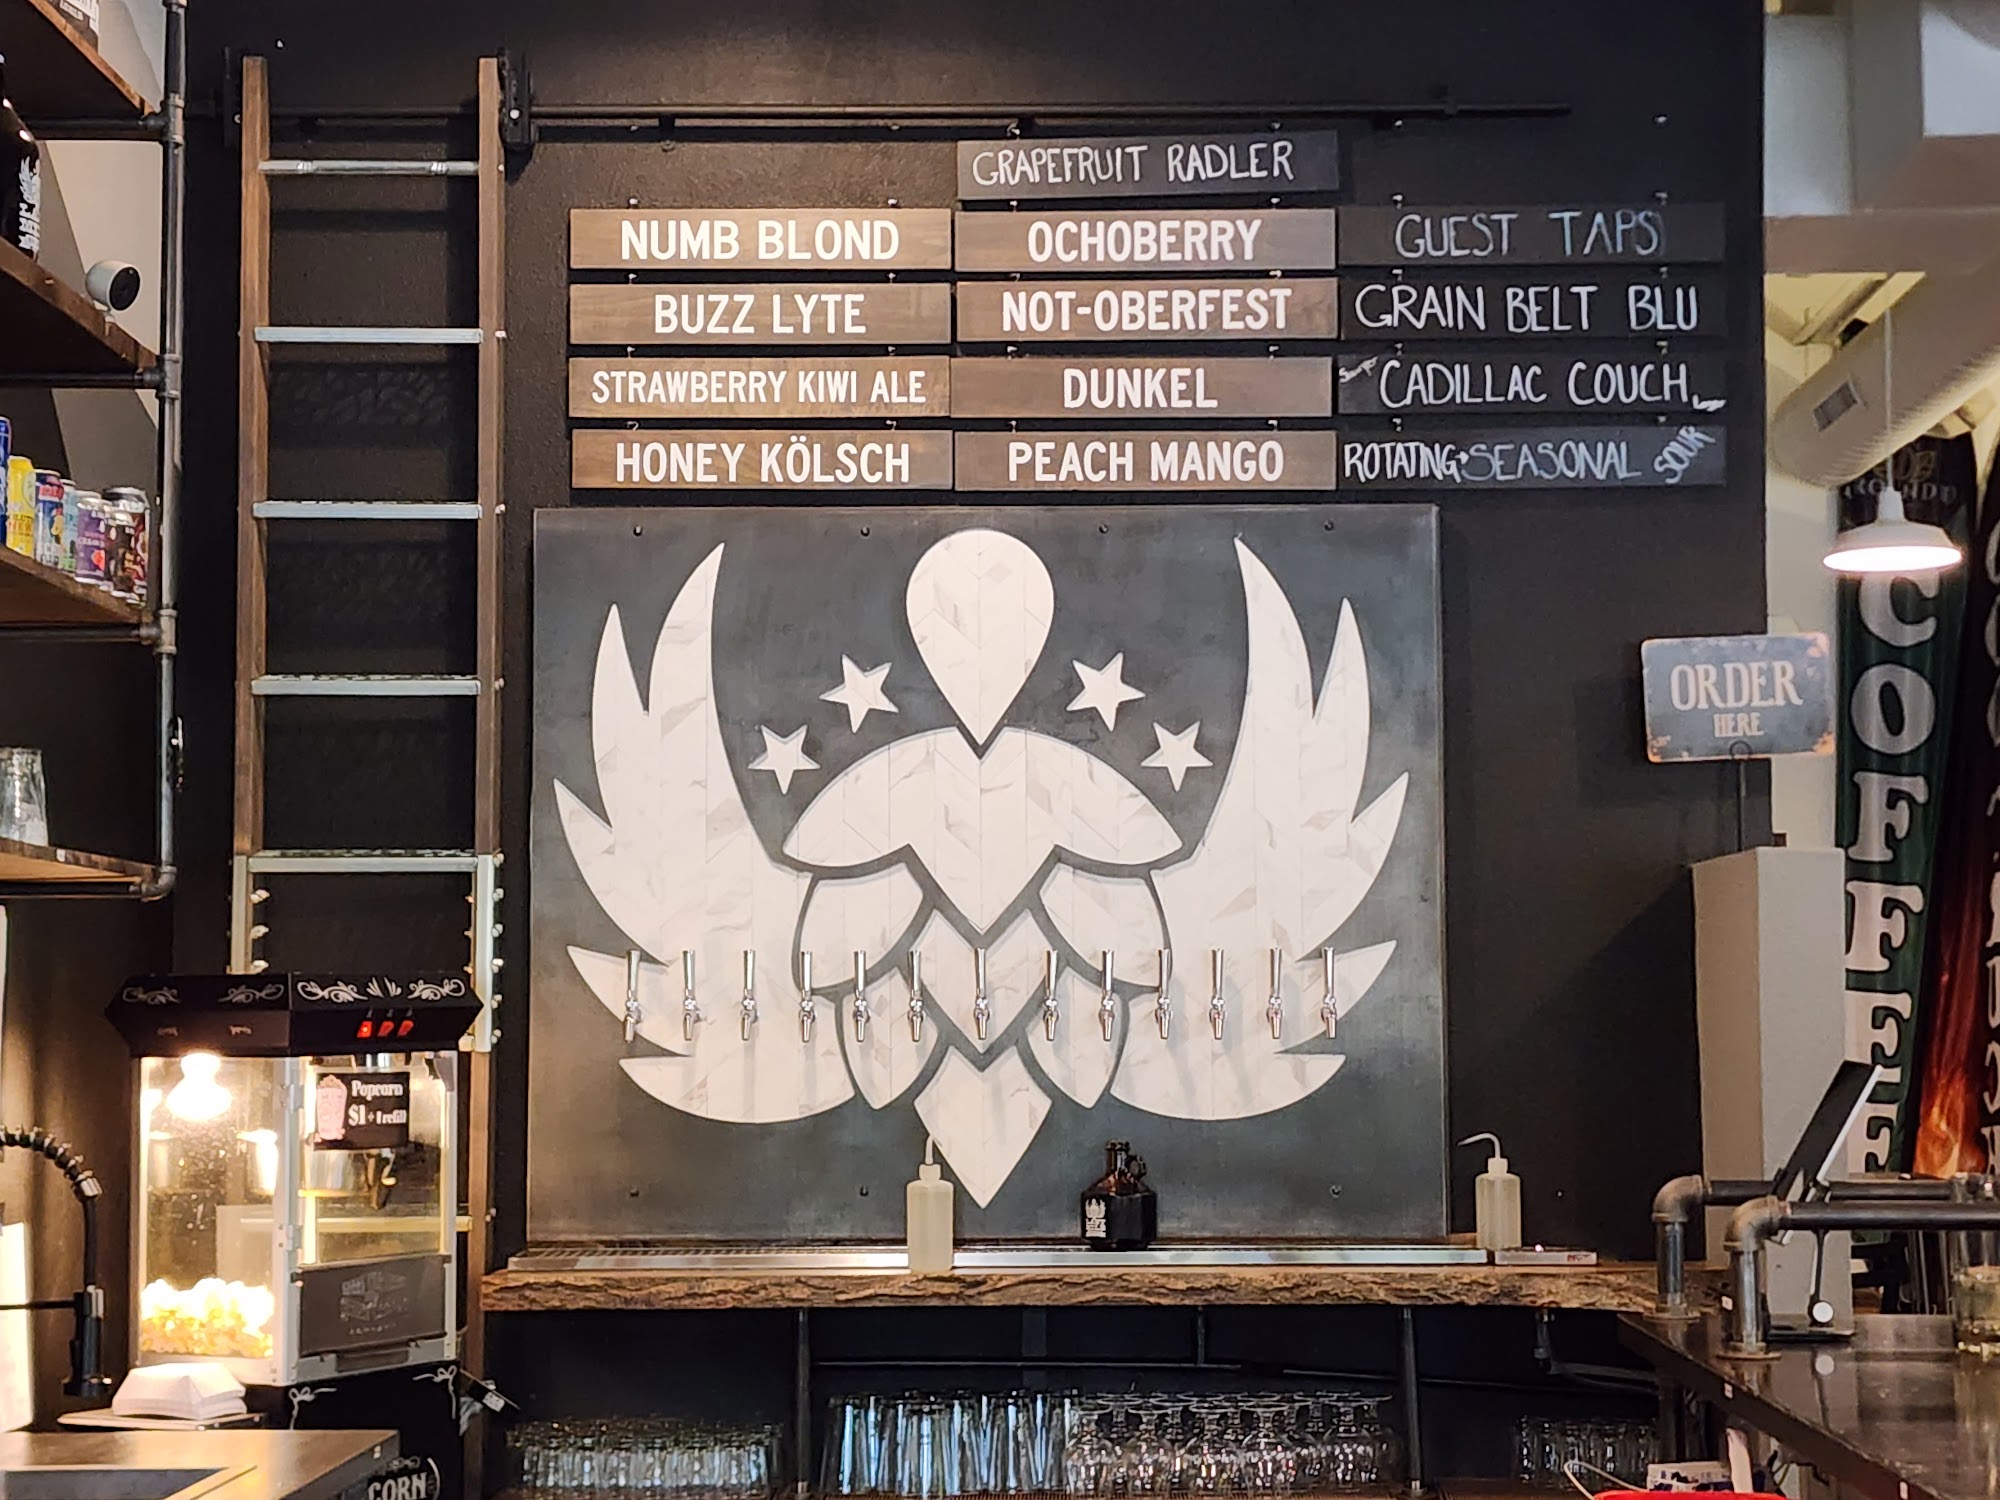 GRAPEFRUIT RADLER
NUMB BLOND
OCHOBERRY
GUEST TAPS
BUZZ LYTE
NOT-OBERFEST
GRAIN BELT BLU
STRAWBERRY KIWI ALE
DUNKEL
CADILLAC COUCH
HONEY KÖLSCH
PEACH MANGO
ROTATING SEASONAL SOUR
ORDER
HERE
COFFEE
Popcorn
$1 + 1 refill
CORN